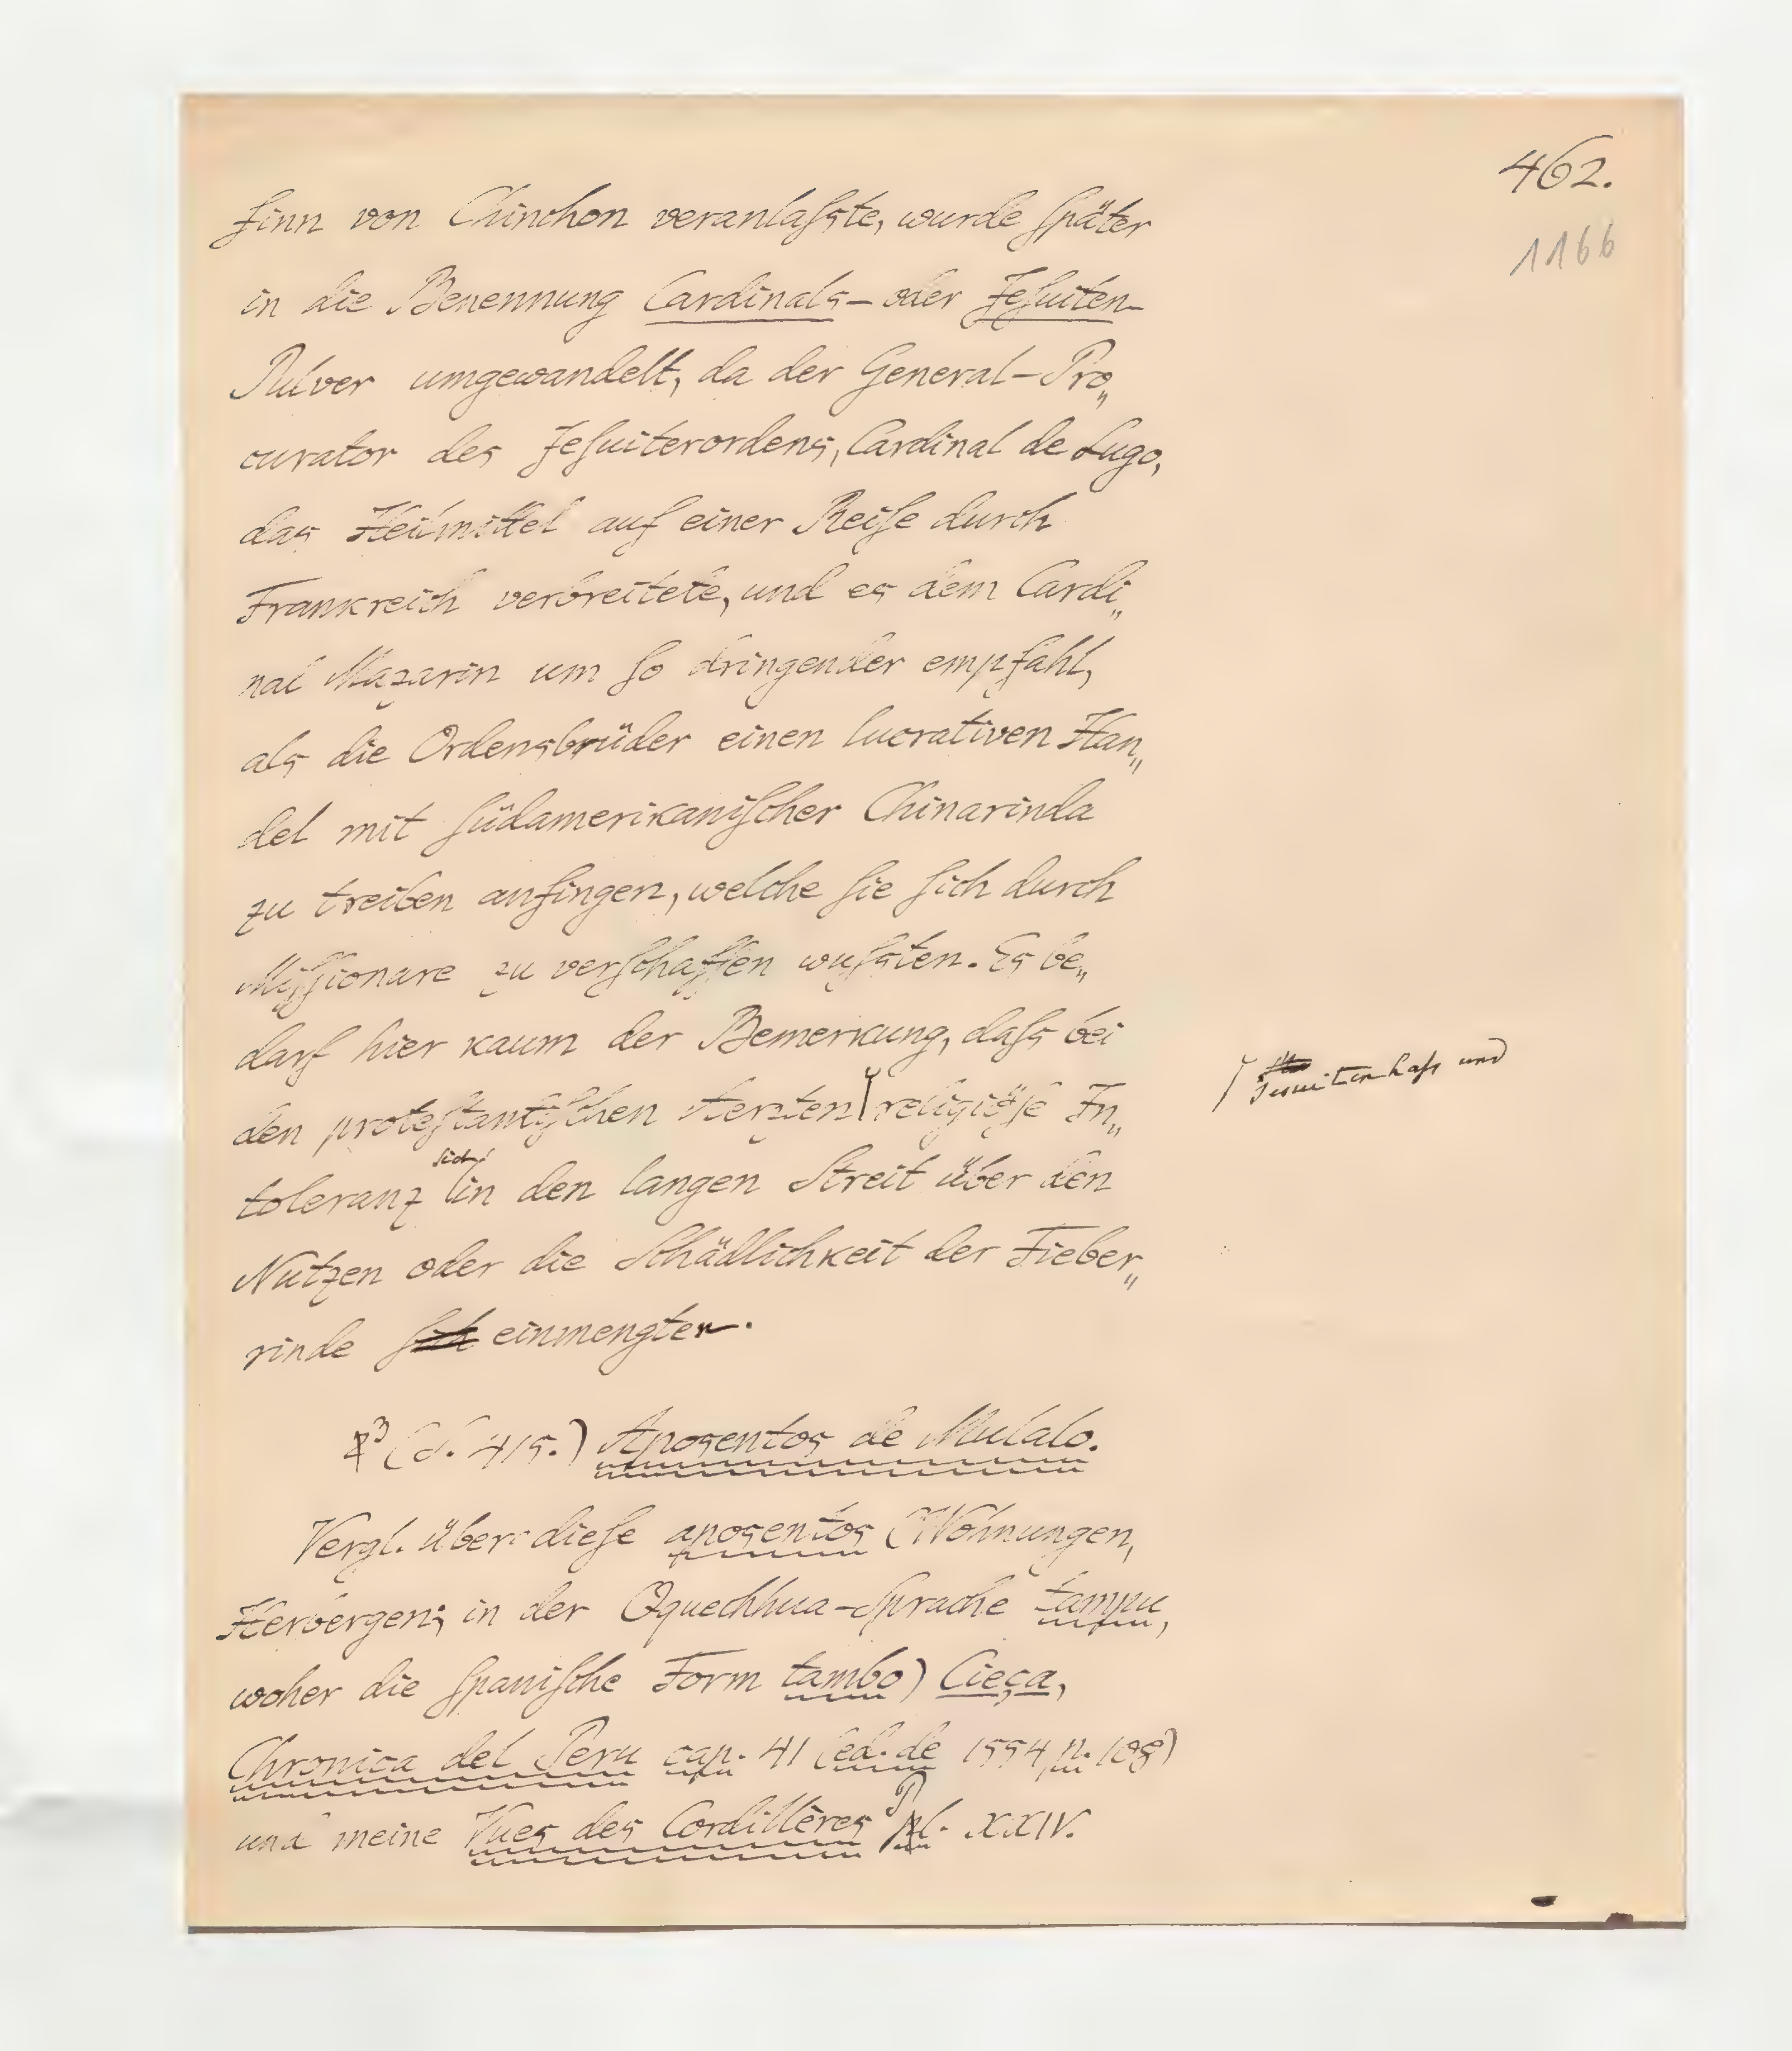 462.
1166
ſinn von Chinchon veranlaſste, wurde ſpäter
in die Benennung Cardinals- oder Jeſuiten-
Pulver umgewandelt, da der General-Pro„
curator des Jeſuiterordens, Cardinal de Lugo,
das Heilmittel auf einer Reiſe durch
Frankreich verbreitete, und es dem Cardi„
nal Mazarin um ſo dringender empfahl,
als die Ordensbrüder einen lucrativen Han„
del mit ſüdamerikaniſcher Chinarinda
zu treiben anfingen, welche ſie ſich durch
Miſſionare zu verſchaffen wuſsten. Es be„
darf hier kaum der Bemerkung, daſs bei
den proteſtantiſchen Aerzten religiöſe In„
Jesuitenhaſs und
toleranz sich in den langen Streit über den
Nutzen oder die Schädlichkeit der Fieber„
rinde ſich einmengten.
3 (S. 415.) Aposentos de Mulalo.
Vergl. über dieſe aposentos (Wohnungen,
Herbergen; in der Qquechhua-Sprache tampu,
woher die ſpaniſche Form tambo) Cieça,
Chronica del Peru cap. 41 (ed. de 1554 p. 108)
und meine Vues des Cordillères Pl. XXIV.